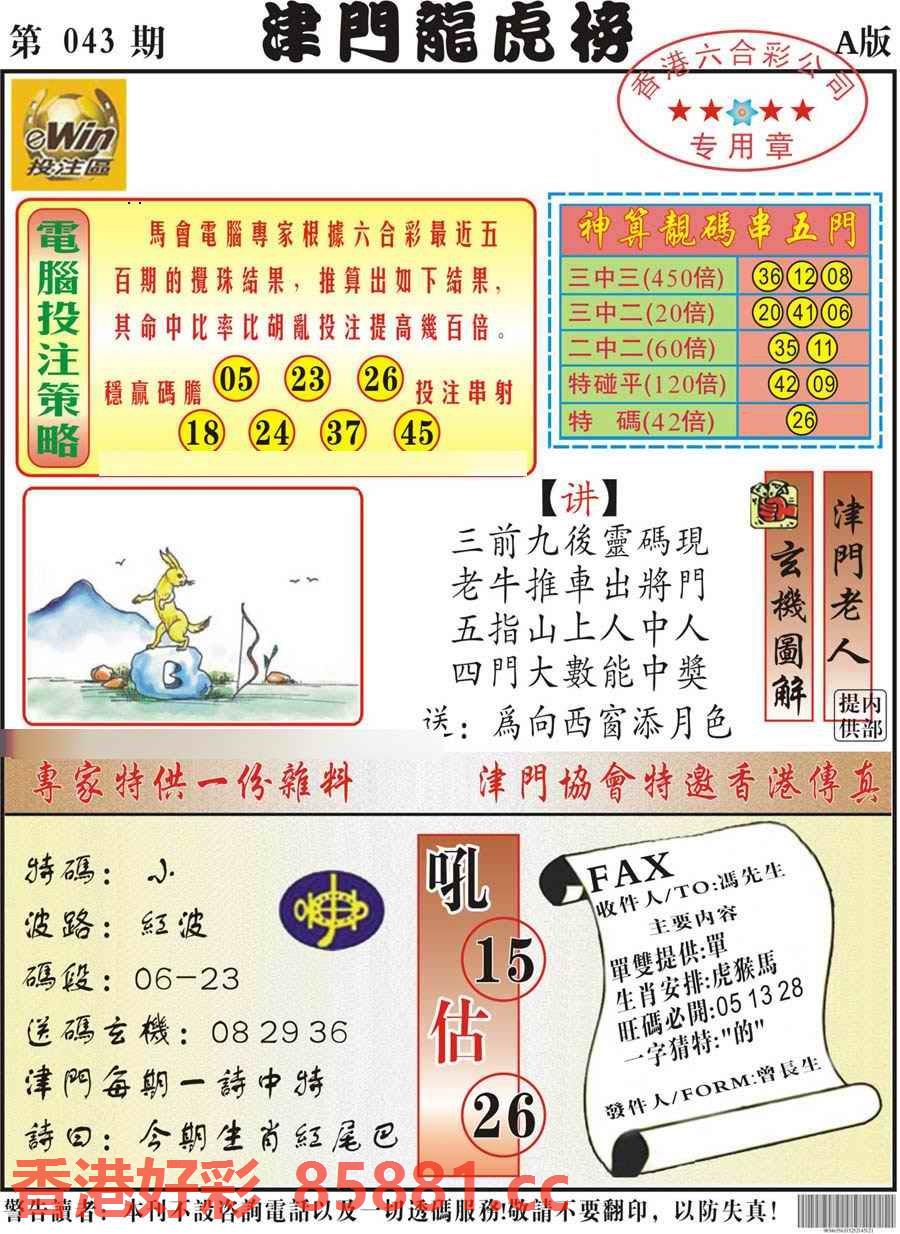 第 043 期
津門龍虎榜
A版
香港六合彩公司
专用章
eWin
投注區
電腦投注策略
馬會電腦專家根據六合彩最近五
百期的攪珠結果，推算出如下結果，
其命中比率比胡亂投注提高幾百倍。
穩贏碼膽 05 23 26 投注串射
18 24 37 45
神算靚碼串五門
三中三(450倍) 36 12 08
三中二(20倍) 20 41 06
二中二(60倍) 35 11
特碰平(120倍) 42 09
特 碼(42倍) 26
B
【讲】
三前九後靈碼現
老牛推車出將門
五指山上人中人
四門大數能中獎
送：爲向西窗添月色
玄機圖解
津門老人
内部提供
專家特供一份雜料
津門協會特邀香港傳真
特碼：小
波路：紅波
碼段：06-23
送碼玄機：08 29 36
津門每期一詩中特
詩曰：今期生肖紅尾巴
吼
15
估
26
FAX
收件人/TO:馮先生
主要内容
單雙提供:單
生肖安排:虎猴馬
旺碼必開:05 13 28
一字猜特:"的"
發件人/FORM:曾長生
香港好彩 85881.cc
警告讀者：本刊不設咨詢電話以及一切透碼服務!敬請不要翻印，以防失真!